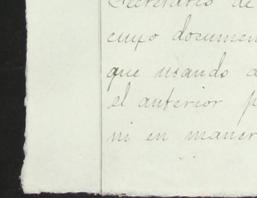 Secretario de
cuyo documen
que usando d
el anterior p
ni en maner